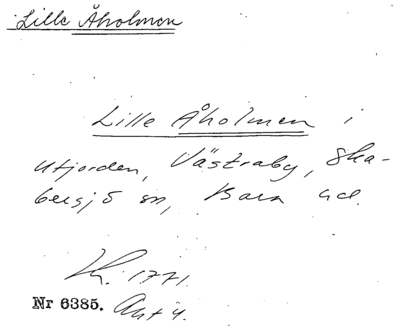 Lille Åholmen
Lille Åholmen i
utjorden, Västraby, Ska-
bersjö sn, Bara hd.
K. 1771.
Nr 6385. Akt 4.